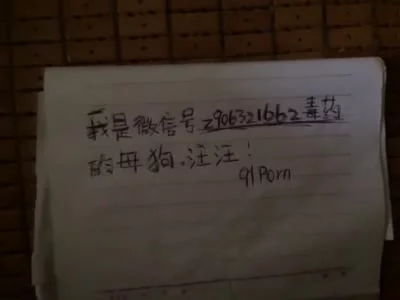 我是微信号2906321662毒药
的母狗，汪汪！
91Porn